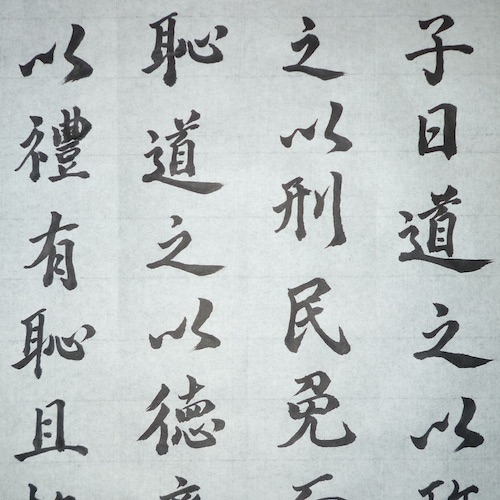 子曰道之以政
之以刑民免而
恥道之以德齊
以禮有恥且